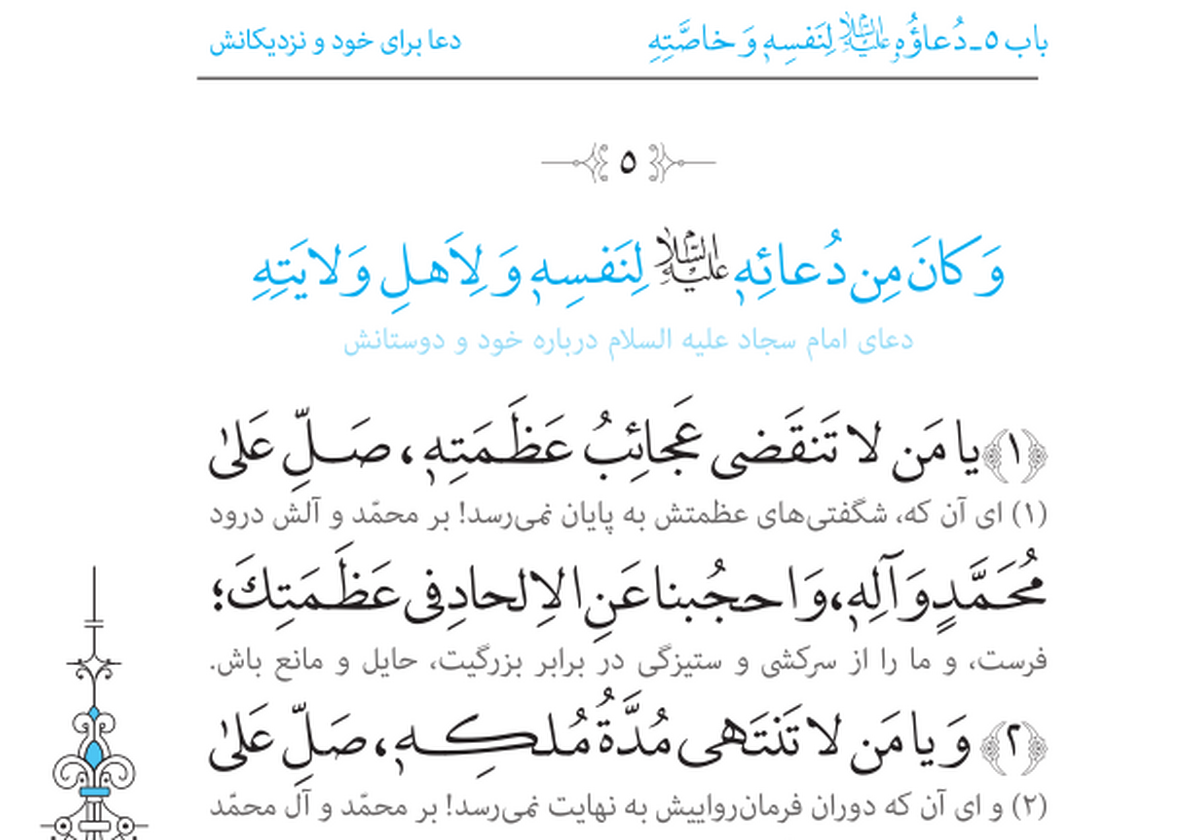 باب ۵ـ دُعاؤُهٕ علیه‌السلام لِنَفسِهٖ وَ خاصَّتِهِ
دعا برای خود و نزدیکانش
۵
وَ کانَ مِن دُعائِهٖ علیه‌السلام لِنَفسِهٖ وَ لِاَهلِ وَلایَتِهِ
دعای امام سجاد علیه السلام درباره خود و دوستانش
﴿۱﴾ یا مَن لا تَنقَضی عَجائِبُ عَظَمَتِهٖ، صَلِّ عَلیٰ
(۱) ای آن که، شگفتی‌های عظمتش به پایان نمی‌رسد! بر محمّد و آلش درود
مُحَمَّدٍ وَ آلِهٖ، وَ احجُبنا عَنِ الاِلحادِ فی عَظَمَتِكَ؛
فرست، و ما را از سرکشی و ستیزگی در برابر بزرگیت، حایل و مانع باش.
﴿۲﴾ وَ یا مَن لا تَنتَهی مُدَّةُ مُلکِهٖ، صَلِّ عَلیٰ
(۲) و ای آن که دوران فرمان‌رواییش به نهایت نمی‌رسد! بر محمّد و آل محمّد